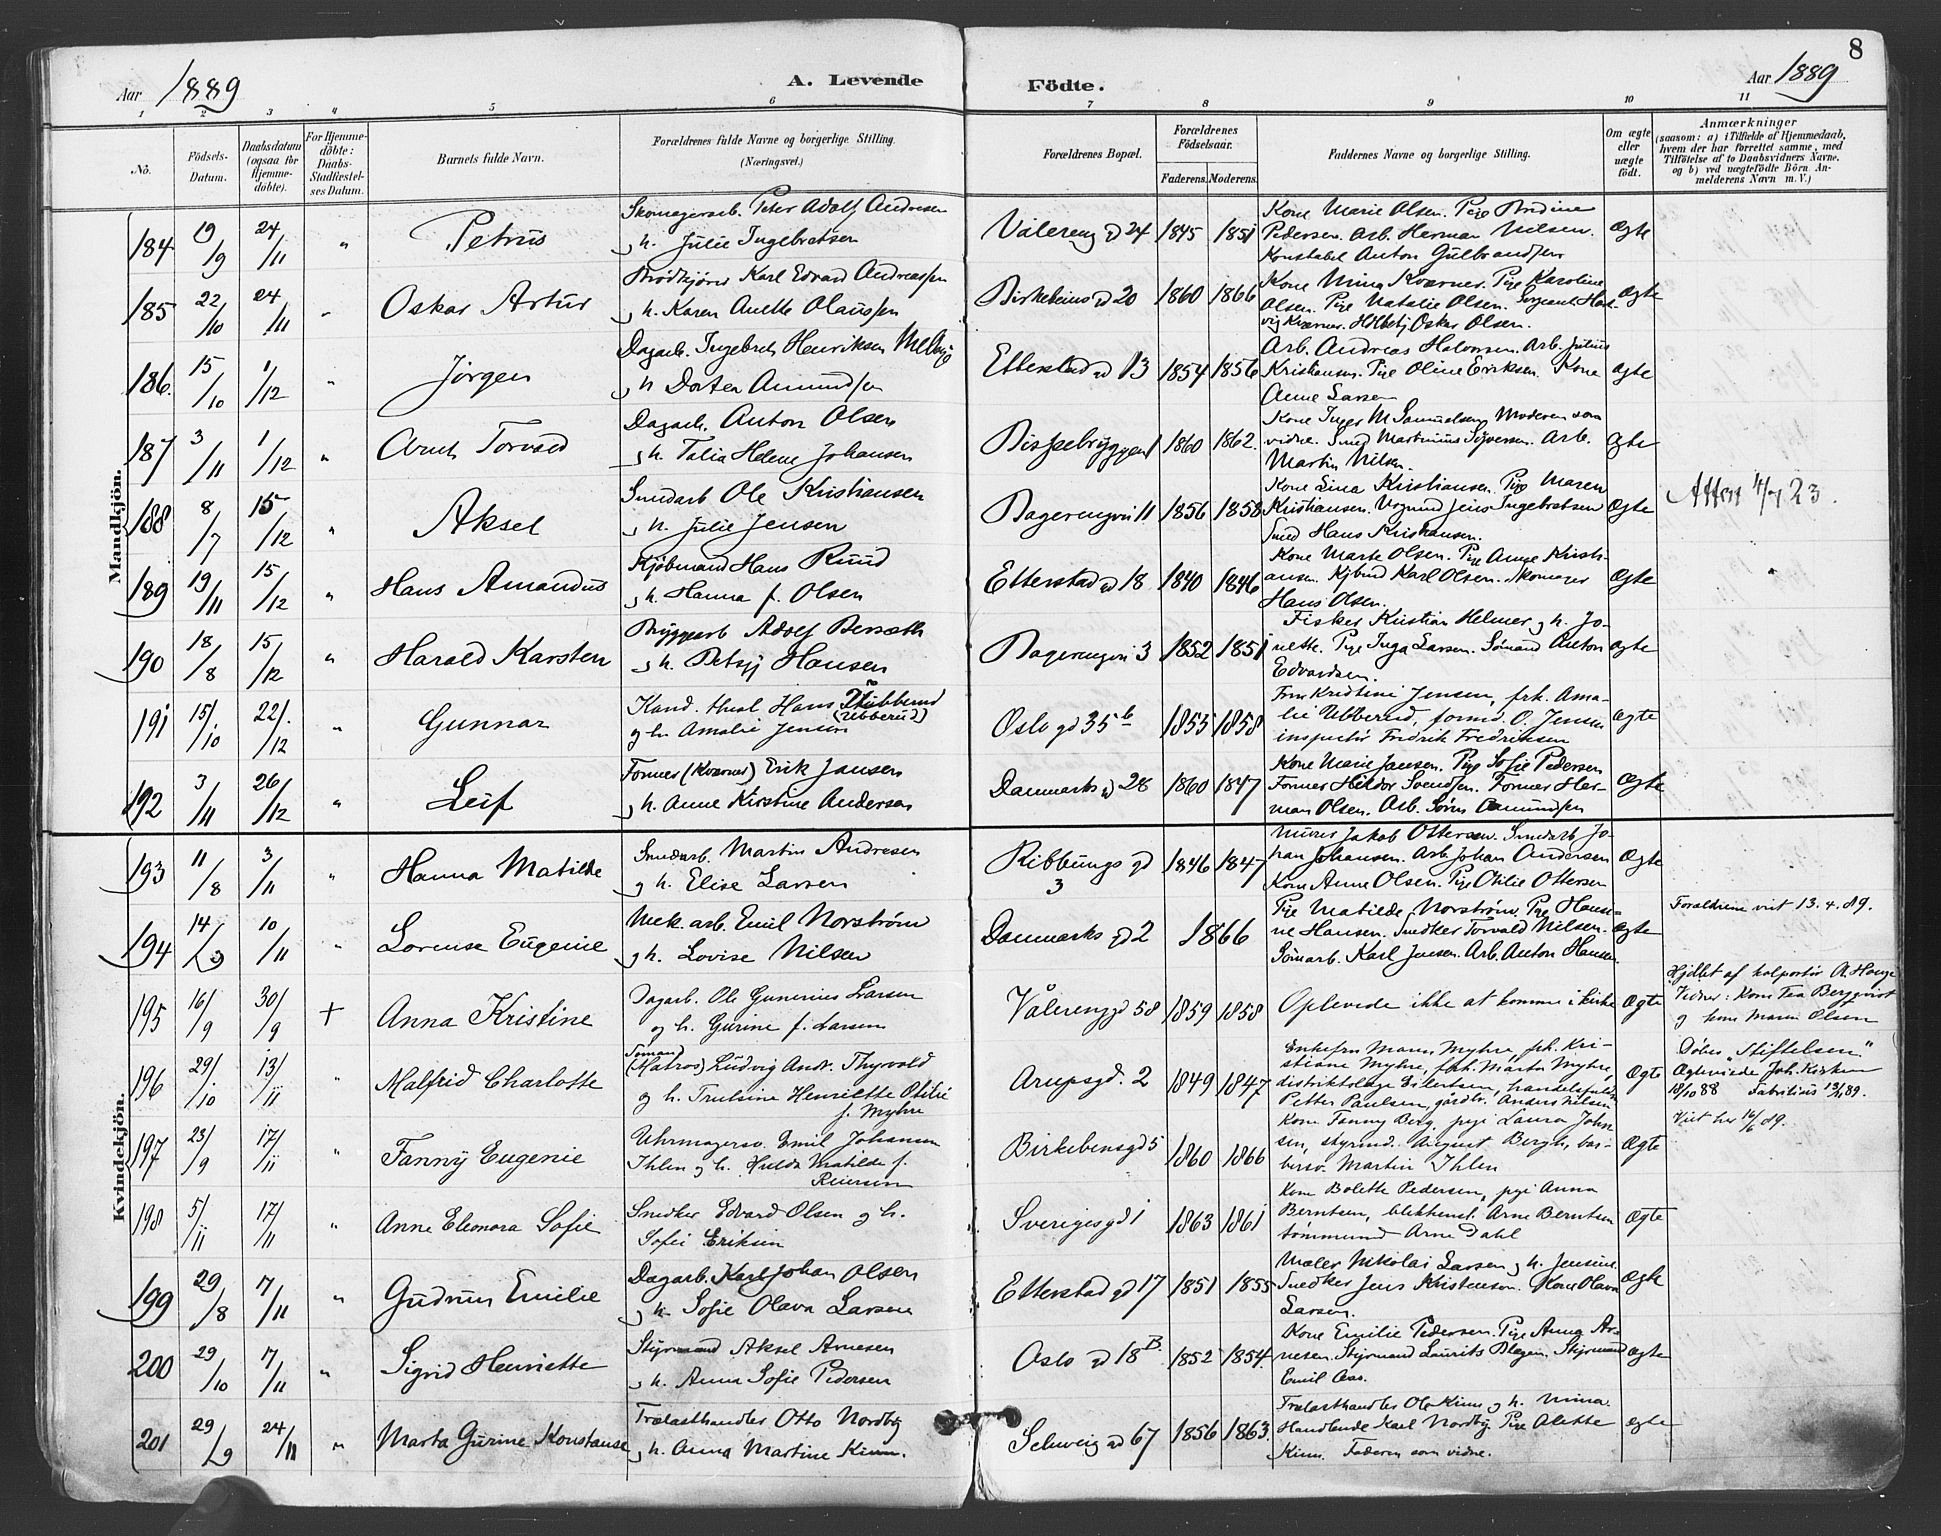 8
Aar 1889
A. Levende Födte.
Aar 1889
1 2 3 4 5 6 7 8 9 10 11
No.
Födsels-Datum.
Daabsdatum (ogsaa for Hjemme-döbte).
For Hjemme-döbte: Daabs-Stadfæstel-ses Datum.
Barnets fulde Navn.
Forældrenes fulde Navne og borgerlige Stilling. (Næringsvei.)
Forældrenes Bopæl.
Forældrenes Födselsaar.
Faderens. Moderens.
Faddernes Navne og borgerlige Stilling.
Om ægte eller uægte födt.
Anmærkninger
(saasom: a) i Tilfælde af Hjemmedaab,
hvem der har forrettet samme, med
Tilföielse af to Daabsvidners Navne.
og b) ved uægtefödte Börn An-
melderens Navn m. V.)
Mandkjön.
184 19/9 24/11 " Petrus
Skomagerarb. Peter Adolf Andresen
og h. Julie Ingebretsen
Valereng gd 24 1845 1851
Kone Marie Olsen. Pige
Pedersen. Arb. Herman Nilsen.
Konstabel Anton Gulbrandsen
Ægte
185 22/10 24/11 " Oskar Artur
Brödkjörer Karl Edvard Andreassen
og h. Karen Anette Olaussen
Birkebeins gd 20 1860 1866
Kone Mina Kværner. Pige Karoline
Olsen. Pige Natalie Olsen. Sergeant Hart-
vig Kværner. Oskar Olsen.
Ægte
186. 15/10 1/12 " Jörgen
Dagarb. Ingebret Henriksen
og h. Dortea Amundsen
Etterstad gd 13 1854 1856
Arb. Andreas Halvorsen. Arb. Julius
Kristiansen. Pige Oline Eriksen. Kone
Anne Larsen
ægte
187 3/11 1/12 " Arnt Torvald
Dagarb. Anton Olsen
og h. Talia Helene Johansen
Bispebryggen 1 1860 1862.
Kone Inger M Samuelsen, Moderen som
vidne. Smed Martinius Syversen. Arb.
Martin Nilsen.
ægte
188 8/7 15/12 " Aksel
Smedarb Ole Kristiansen
og h. Julie Jensen
Bagerengvei 11 1856 1858
Kone Lina Kristiansen. Pige Maren
Kristiansen. Vognmd Jens Ingebretsen
Smed Hans Kristiansen.
Ægte
Attest 4/7 23.
189 19/11 15/12 " Hans Amandus
Kjöbmand Hans Ruud
og h. Hanna f. Olsen
Etterstad gd 18 1840 1846
Kone Marte Olsen. Pige Kristi-
ansen. Kjbmd Karl Olsen. Skomager
Hans Olsen.
Ægte
190 18/8 15/12 " Harald Karsten
Bryggearb Adolf Berseth
og h. Betsy Hansen
Bagerengvei 3 1852 1851
Fisker Kristian Helmer og h. Jo-
nette. Pige Inga Larsen. Sömand Anton
Edvardsen.
ægte
191 15/10 22/12 " Gunnar
Kand. theol Hans Stubberud
(Ubberud)
og h. Amalie Jensen
Oslo gd 35 b 1855 1858
Fru Kristine Jensen, frk. Ama-
lie Ubberud, formd. O. Jensen
inspektör Fridrik Fredriksen
ægte
192 3/11 26/12 " Leif
Former (Kværner) Erik Jansen
og h. Anne Kirstine Andersen
Danmarks gd 28 1860 1847
Kone Marie Jansen. Pige Sofie Pedersen
Former Heldor Svendsen. Former Her-
man Olsen. Arb. Sören Amundsen
Ægte
Kvindekjön.
193 11/8 3/11 " Hanna Matilde
Smedarb. Martin Andresen
og h. Elise Larsen
Ribbungs gd 3 1846 1847
Murer Jakob Ottersen. Smedarb Jo-
han Johansen. Arb. Johan Andersen
Kone Anne Olsen. Pige Otilie Ottersen
Ægte
194 14/9 10/11 " Lorense Eugenie
Mek. arb. Emil Norström
og h. Lovise Nilsen
Danmarks gd 2 1866
Pige Matilde Norström. Pige Hansi-
ne Hansen. Snedker Torvald Nilsen.
Sömarb. Karl Jensen. Arb. Anton Hansen.
ægte
Forældrene viet 13.4.89.
195 16/9 30/9 + Anna Kristine
Dagarb. Ole Gunerius Larsen
og h. Gurine f. Larsen
Vålerenggd 58 1859 1858
Oplevede ikke at komme i kirke
Ægte
Hjdöbt af kolportör A. Hauge
Vidner: Kone Tea Bergqvist
og kone Maren Olsen
196 29/10 13/11 " Malfrid Charlotte
Sömand
(Matros) Ludvig Andr. Thyvold
og h. Trulsine Henriette Otilie
f. Myhre
Arupsgd. 2 1849 1847
Enkefru Maren Myhre, frk. Kri-
stiane Myhre, frk. Marta Myhre,
distriktslæge Eilertsen,
Petter Paulsen, gårdbr. Anders Nilsen
Ægte
Döbt "Stiftelsen".
Ægteviede Joh. Kirken
18/10 88 Fabritius 13/11 89.
197 23/9 17/11 " Fanny Eugenie
Uhrmagersv. Emil Johansen
Ihlen og h. Hulda Matilde f.
Reiersen
Birkebensgd 5 1860 1866
Kone Fanny Berg, pige Laura John-
sen, styrmd. August Bergh, bar-
bersv. Martin Ihlen
Ægte
Viet her 16/6 89.
198 5/11 17/11 " Anne Eleonora Sofie
Snedker Edvard Olsen og h.
Sofie Eriksen
Sverigesgd 1 1863 1861
Kone Bolette Pedersen, pige Anna
Berntsen, blikkensl. Arne Berntsen
tömmermd Arne Dahl
Ægte
199 29/8 7/11 " Gudrun Emilie
Dagarb. Karl Johan Olsen
og h. Sofie Olava Larsen
Etterstad gd 17 1851 1855
Maler Nikolai Larsen og h. Jensine.
Snedker Jens Kristensen. Kone Olava
Larsen.
Ægte
200 29/10 7/11 " Sigrid Henriette
Styrmand Aksel Arnesen
og h. Anna Sofie Pedersen
Oslo gd 18 B 1852 1854.
Kone Emilie Pedersen. Pige Anna Ar-
nesen. Styrmand Laurits Blegen. Styrmand
Emil Aas.
ægte
201 29/9 24/11 " Marta Gurine Konstanse
Trælasthandler Otto Nordby
og h. Anna Martine Kinn.
Schweig gd 67 1856 1863.
Trælasthandler Ole Kinn og h. Mina.
Handlende Karl Nordby. Pige Alette
Kinn. Faderen som vidne.
ægte